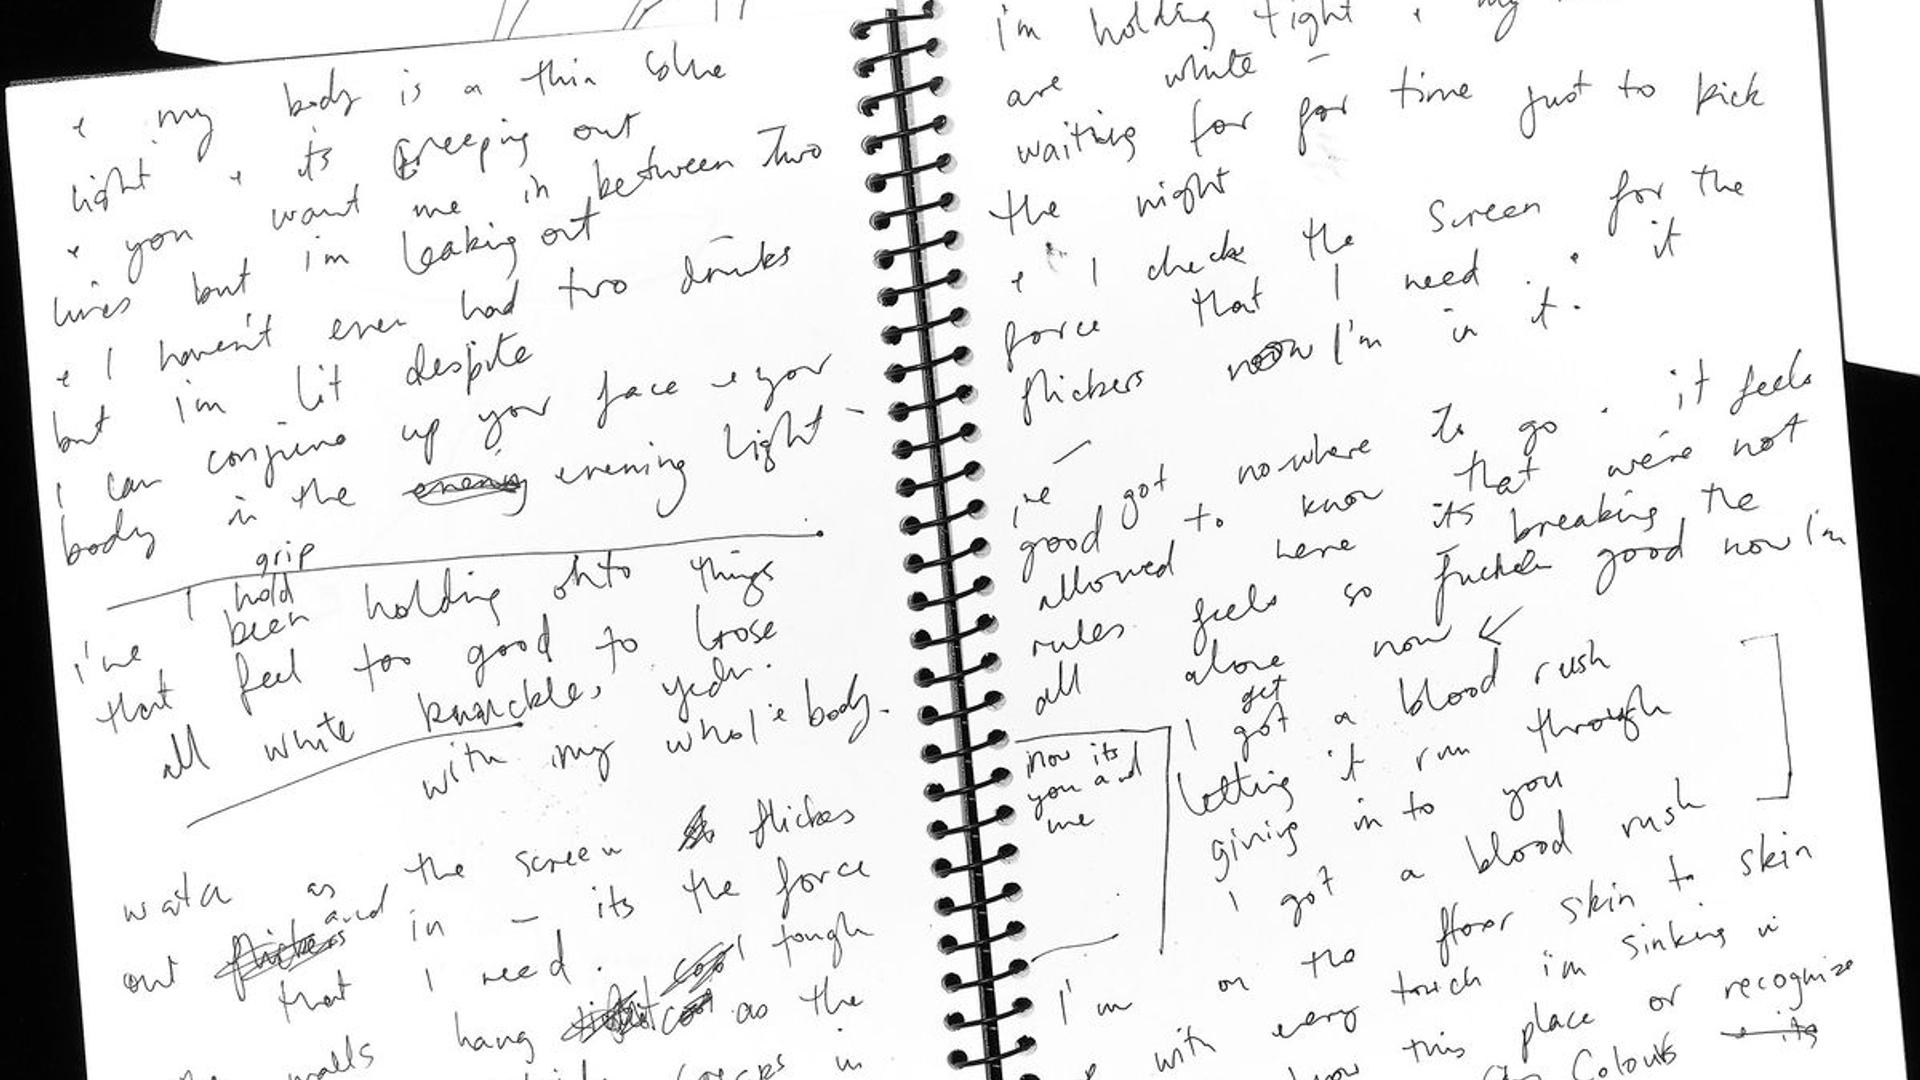 & my body is a thin blue
light & its creeping out
& you want me in between two
lines but i'm leaking out
& I haven't even had two drinks
but i'm lit despite
I can conjure up your face & your
body in the evening evening light -
grip
I hold
i've been holding onto things
that feel too good to lose
all white knuckle, yeah.
with my whole body.
watch as the screen flickes
out flickers and in - its the force
that I need.
walls hang cool tough
as the
in
i'm holding tight & my
are white -
waiting for for time just to kick
the night
& I check the screen for the
force that I need. & it
flickers now I'm in it.
-
got nowhere to go. it feels
good to know that we're not
allowed here its breaking the
rules feels so fucken good now I'm
all alone now
get
I got a blood rush
letting it run through
giving in to you
I got a blood rush
now its
you and
me
I'm on the floor skin to skin
with every touch i'm sinking in
know this place or recognize
Colours & its